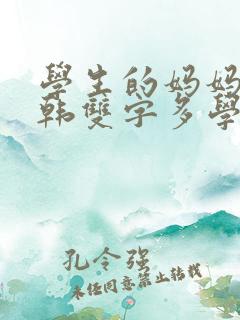 學生的妈妈
韩雙字多學
孔令强
未经同意禁止转载